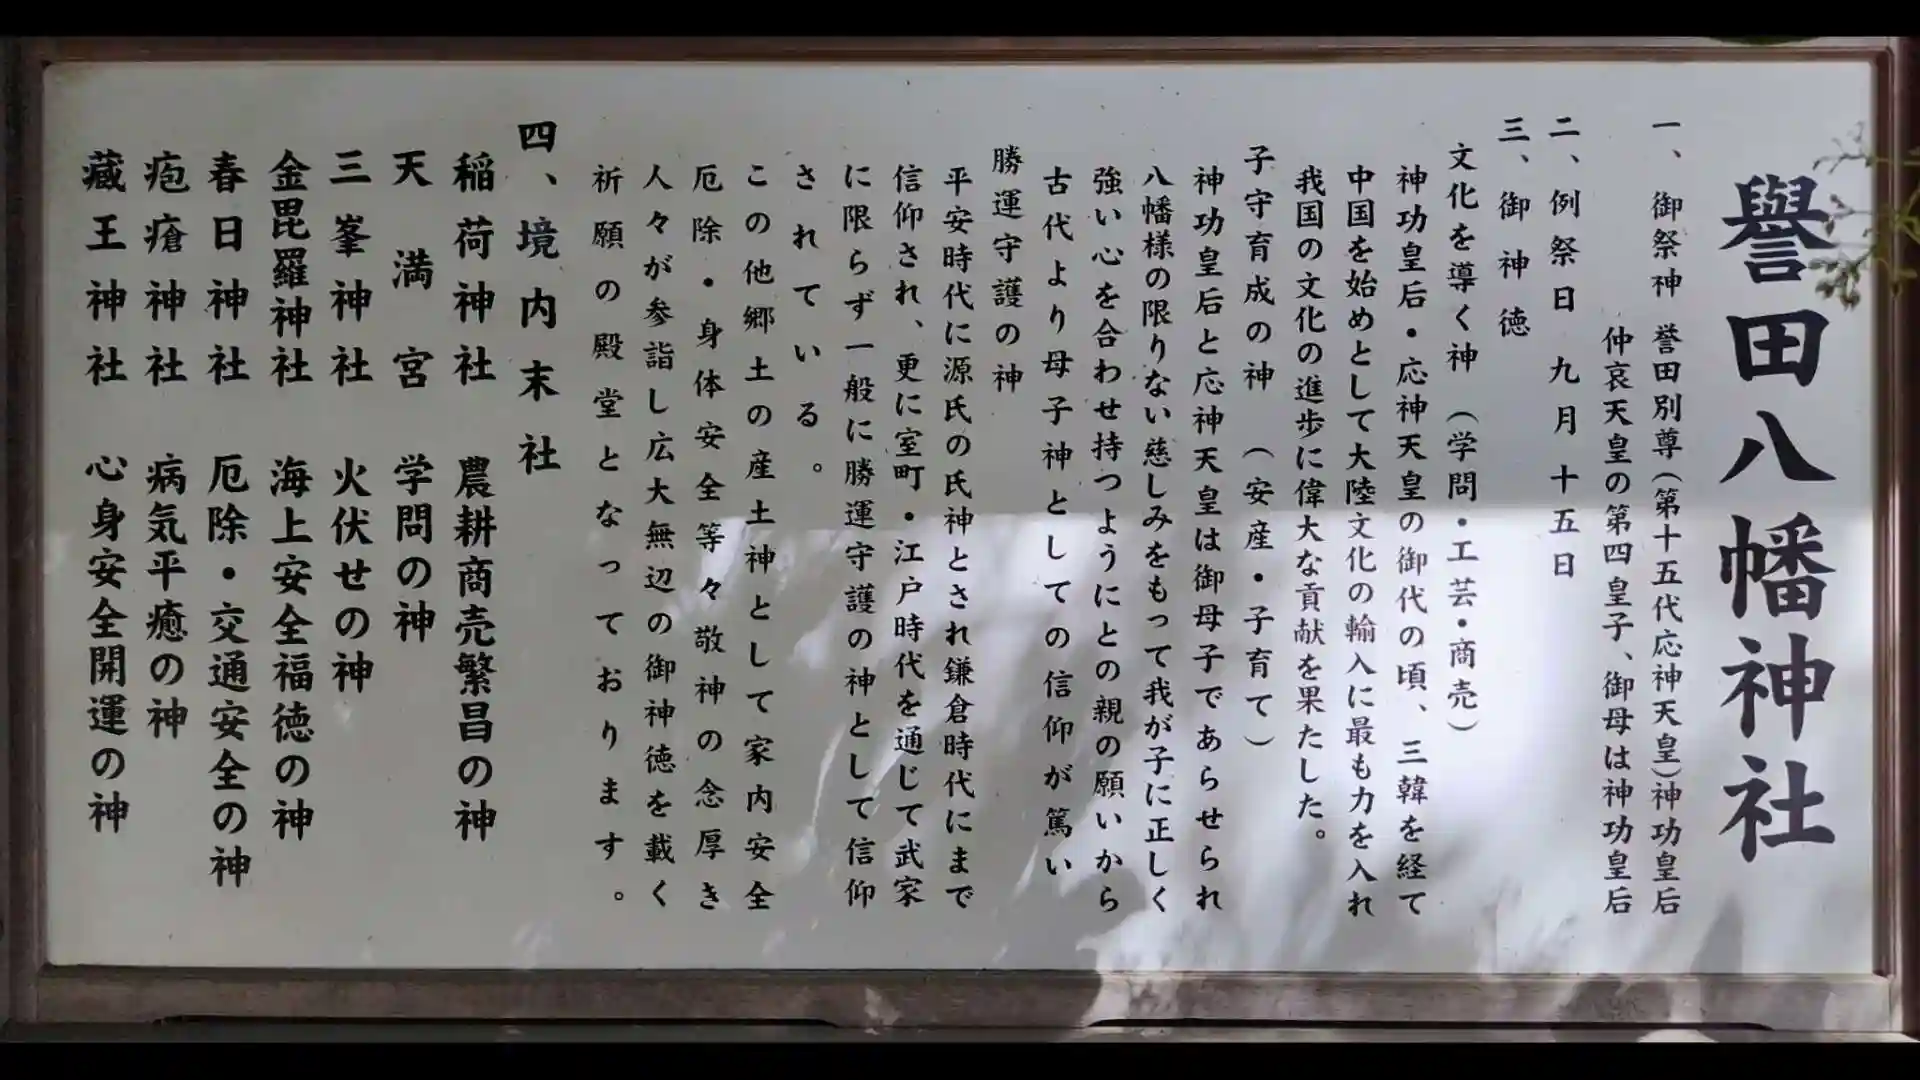 譽田八幡神社
一、御祭神 誉田別尊(第十五代応神天皇)神功皇后
仲哀天皇の第四皇子、御母は神功皇后
二、例祭日 九月十五日
三、御神徳
文化を導く神 (学問・工芸・商売)
神功皇后・応神天皇の御代の頃、三韓を経て
中国を始めとして大陸文化の輸入に最も力を入れ
我国の文化の進歩に偉大な貢献を果たした。
子守育成の神 (安産・子育て)
神功皇后と応神天皇は御母子であらせられ
八幡様の限りない慈しみをもって我が子に正しく
強い心を合わせ持つようにとの親の願いから
古代より母子神としての信仰が篤い
勝運守護の神
平安時代に源氏の氏神とされ鎌倉時代にまで
信仰され、更に室町・江戸時代を通じて武家
に限らず一般に勝運守護の神として信仰
されている。
この他郷土の産土神として家内安全
厄除・身体安全等々敬神の念厚き
人々が参詣し広大無辺の御神徳を載く
祈願の殿堂となっております。
四、境内末社
稲荷神社 農耕商売繁昌の神
天満宮 学問の神
三峯神社 火伏せの神
金毘羅神社 海上安全福徳の神
春日神社 厄除・交通安全の神
疱瘡神社 病気平癒の神
蔵王神社 心身安全開運の神